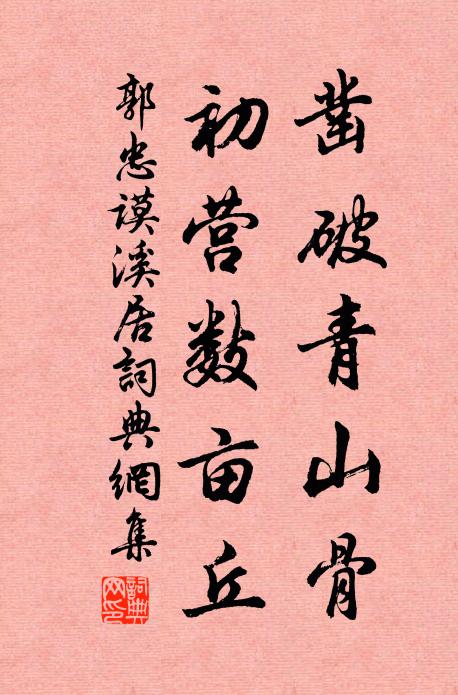 凿破青山骨
初营数亩丘
郭忠谟溪居詞典網集
詞典網印